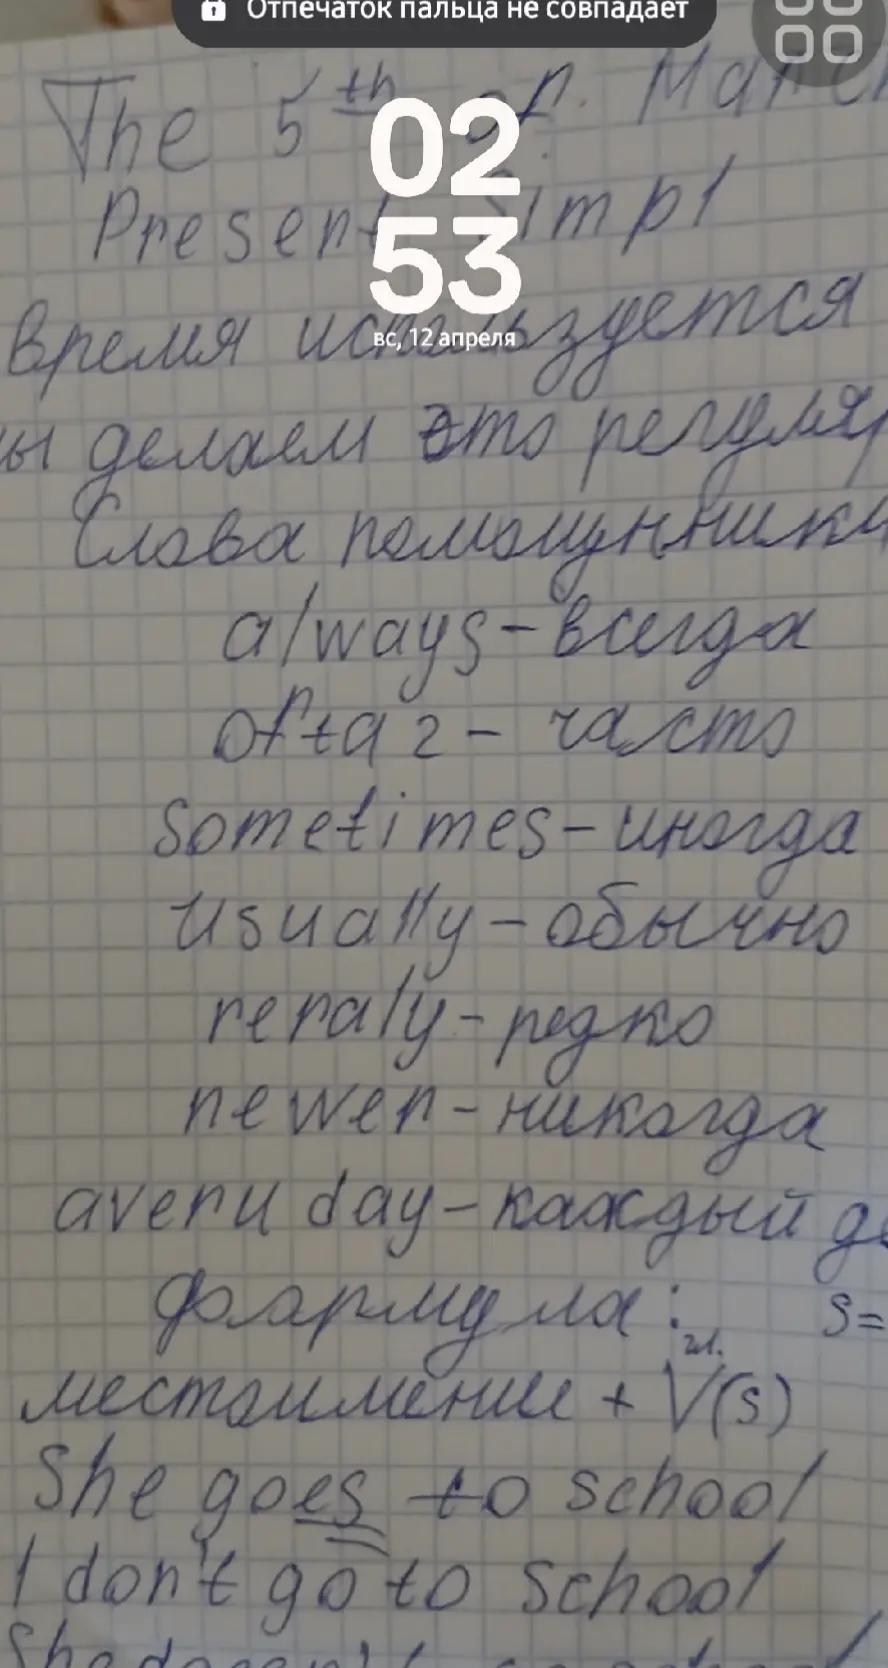 Отпечаток пальца не совпадает
02
53
вс, 12 апреля
The 5th of March
Present Simpl
время используется
ы делаем это регуляр
Слова помощунники
always - всегда
oftaz - часто
sometimes - иногда
usually - обычно
reraly - редко
newer - никогда
averu day - каждый де
формула: s=
гл.
местоимение + V(s)
She goes to school
I don't go to school